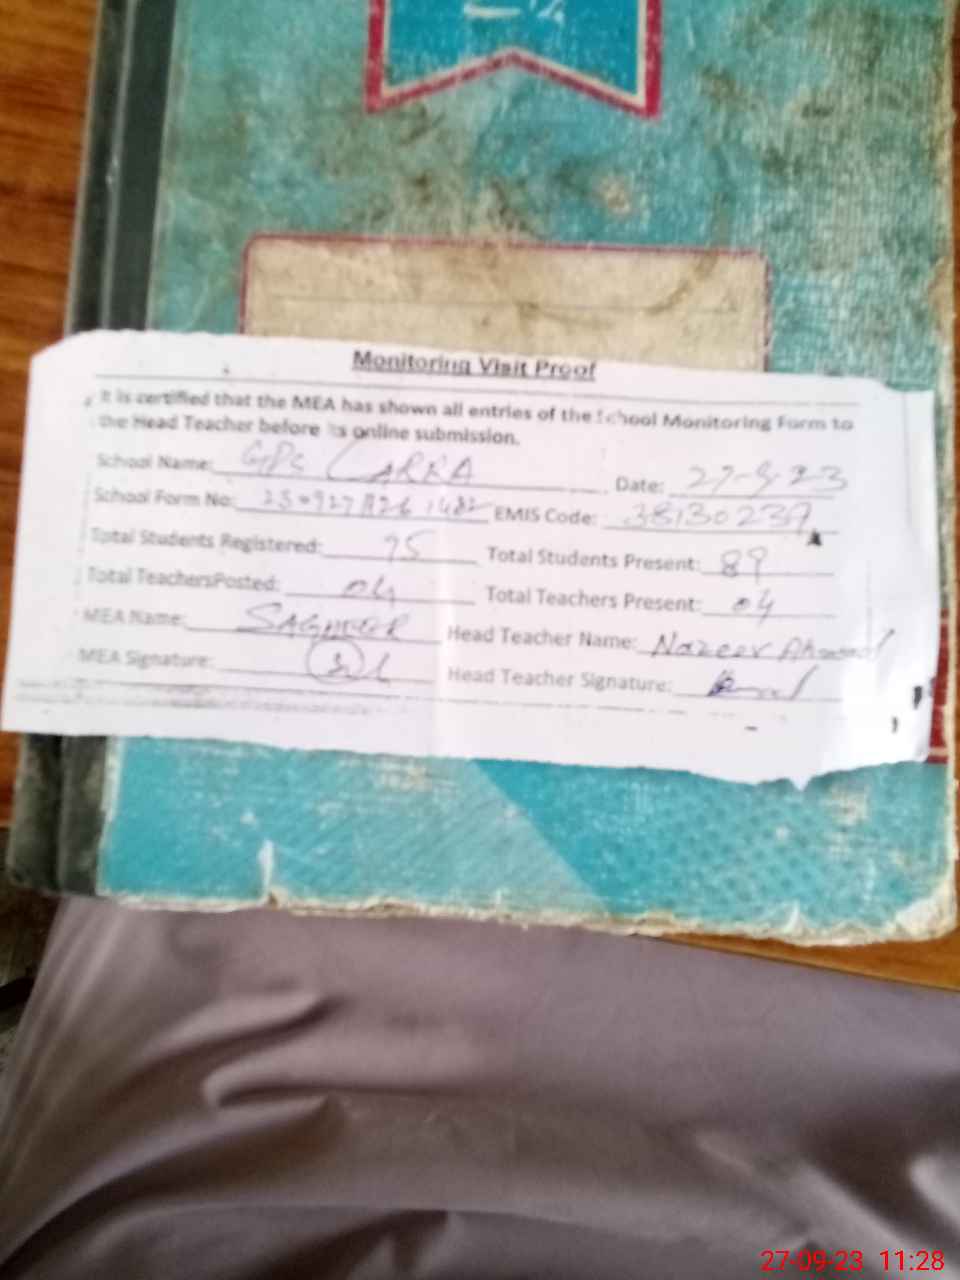 Monitoring Visit Proof
It is certified that the MEA has shown all entries of the School Monitoring Form to
the Head Teacher before its online submission.
School Name: GPS Date: 27-9-23
School Form No: EMIS Code:
Total Students Registered: 95 Total Students Present: 89
Total TeachersPosted: 04 Total Teachers Present: 04
MEA Name: SAGHEER Head Teacher Name: Nazeer Ahmad
MEA Signature: Head Teacher Signature:
27-09-23 11:28